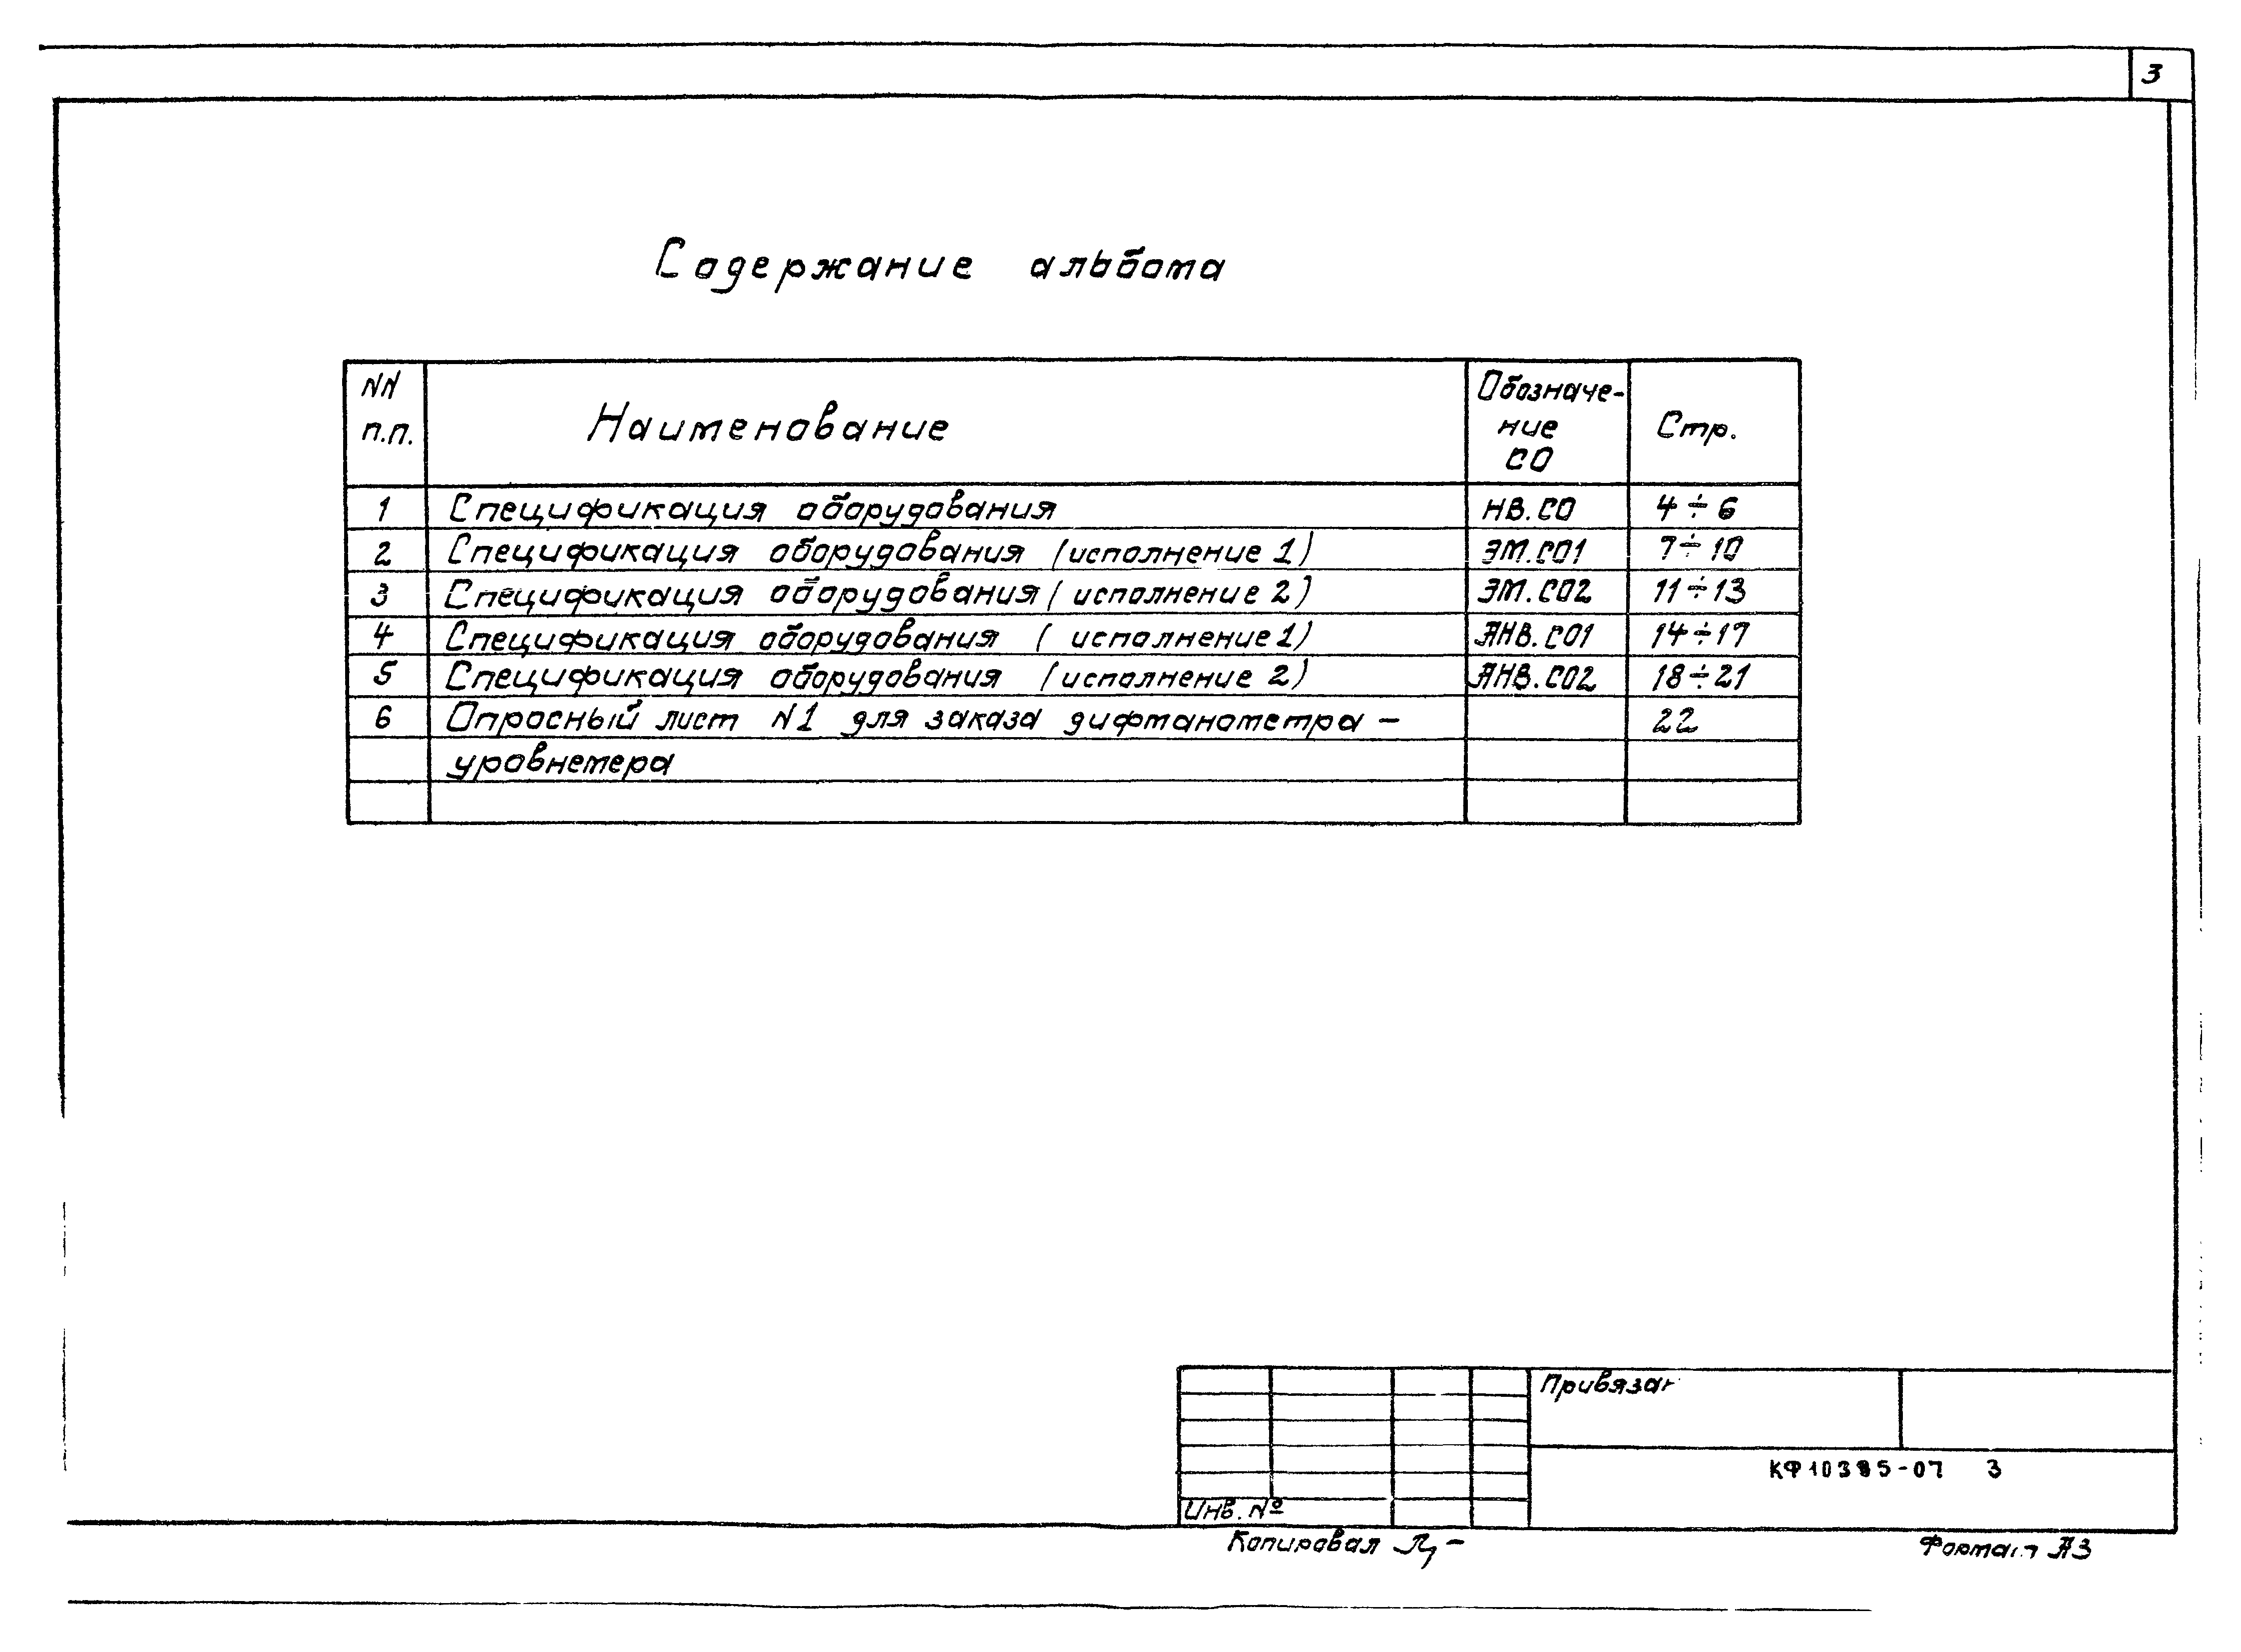 3
Содержание альбома
NN п.п. Наименование Обозначе-ние СО Стр.
1 Спецификация оборудования НВ.СО 4÷6
2 Спецификация оборудования (исполнение 1) ЭМ.СО1 7÷10
3 Спецификация оборудования (исполнение 2) ЭМ.СО2 11÷13
4 Спецификация оборудования (исполнение 1) АНВ.СО1 14÷17
5 Спецификация оборудования (исполнение 2) АНВ.СО2 18÷21
6 Опросный лист N1 для заказа дифманометра- 22
уровнемера
Привязан
3
Инв. №
Копировал
Формат А3